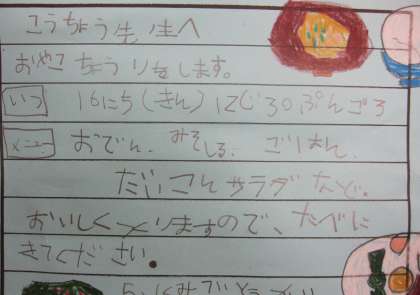 こうちょう先生へ
おやこちょうりをします。
いつ 16にち(きん)12じ30ぷんごろ
メニュー おでん、みそしる、ごはん、
だいこんサラダなど。
おいしくつくりますので、たべに
きてください。